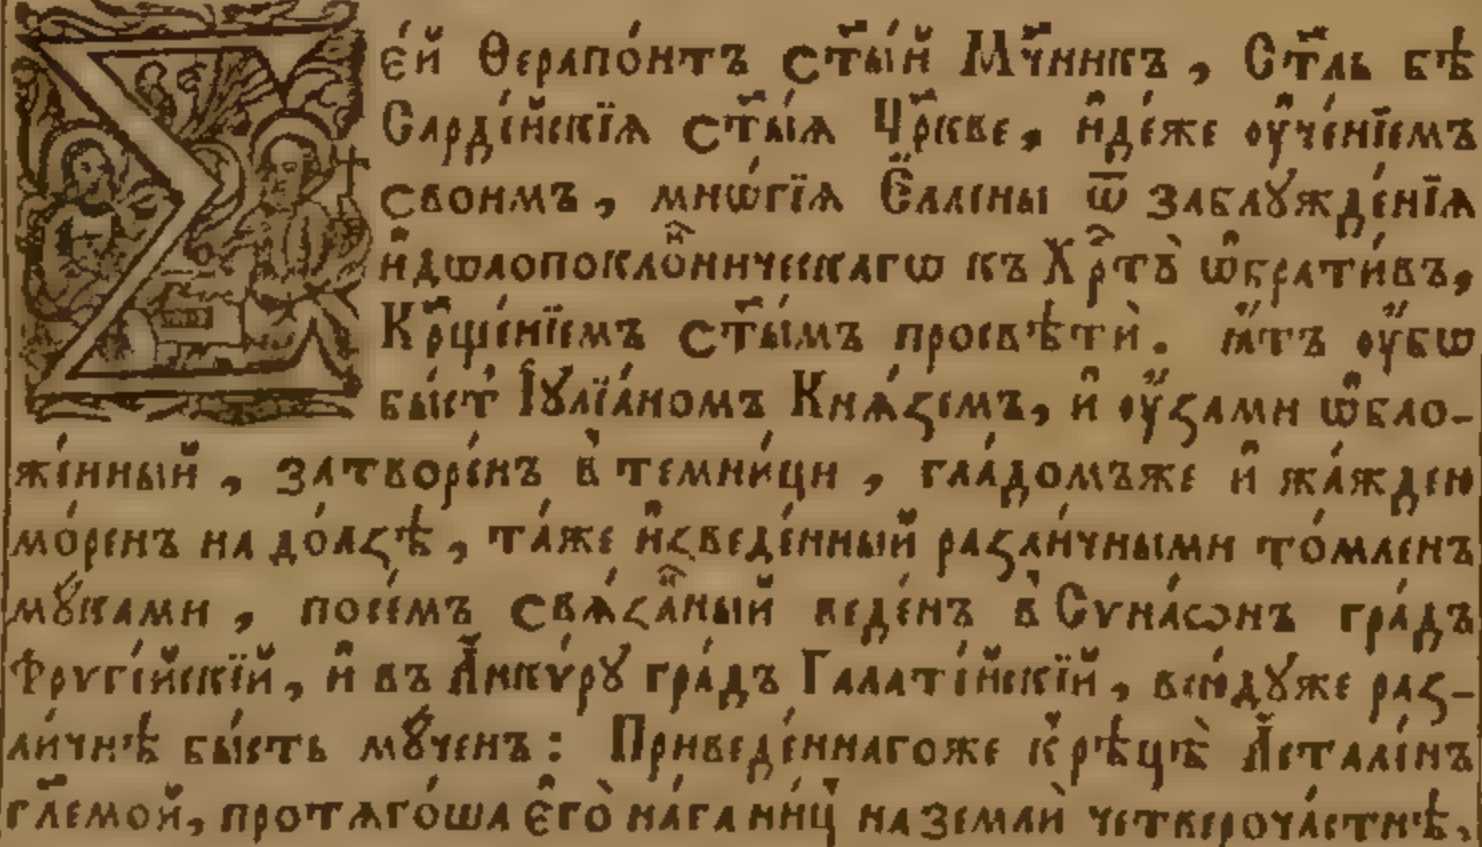 Сє́й Ѳерапо́нтъ ст҃ы́й Мч҃нникъ, Ст҃ль бѣ
Сарде́йскїѧ ст҃ы́ѧ Цр҃кве, и҆де́же оу҆че́нїемъ
своимъ, мнѡ́гїѧ Є҆́ллины ѿ заблꙋжде́нїѧ
и҆дѡлопокло́нническагѡ къ Хр҃тꙋ̀ ѡ҆брати́въ,
Кр҃ще́нїемъ ст҃ы́мъ просвѣтѝ. ꙗ҆́тъ оу҆́бѡ
бы́ст̾ І҆ꙋлїа́номъ Кнѧ́ѕемъ, и҆ оу҆́ѕами ѡ҆бло-
же́нный, затворе́нъ в̾ темни́ци, гла́домъже и҆ жа́ждею
мо́ренъ на до́лѕѣ, та́же и҆ѕведе́нный раѕли́чными то́мленъ
мꙋ́ками, посе́мъ свѧ́ѕанный веде́нъ в̾ Сѵна́ѡнъ гра́дъ
Фрѵгі́йскїй, и҆ въ А҆нкѵ́рꙋ гра́дъ Галаті́йскїй, всю́дꙋже раѕ-
ли́чнѣ бы́сть мꙋ́ченъ: Приведе́ннагоже к̾ рѣцѣ̀ А҆стале́нъ
гл҃емой, протѧго́ша є҆го̀ на́га ни́ц̾ на землѝ четвероча́стнѣ,